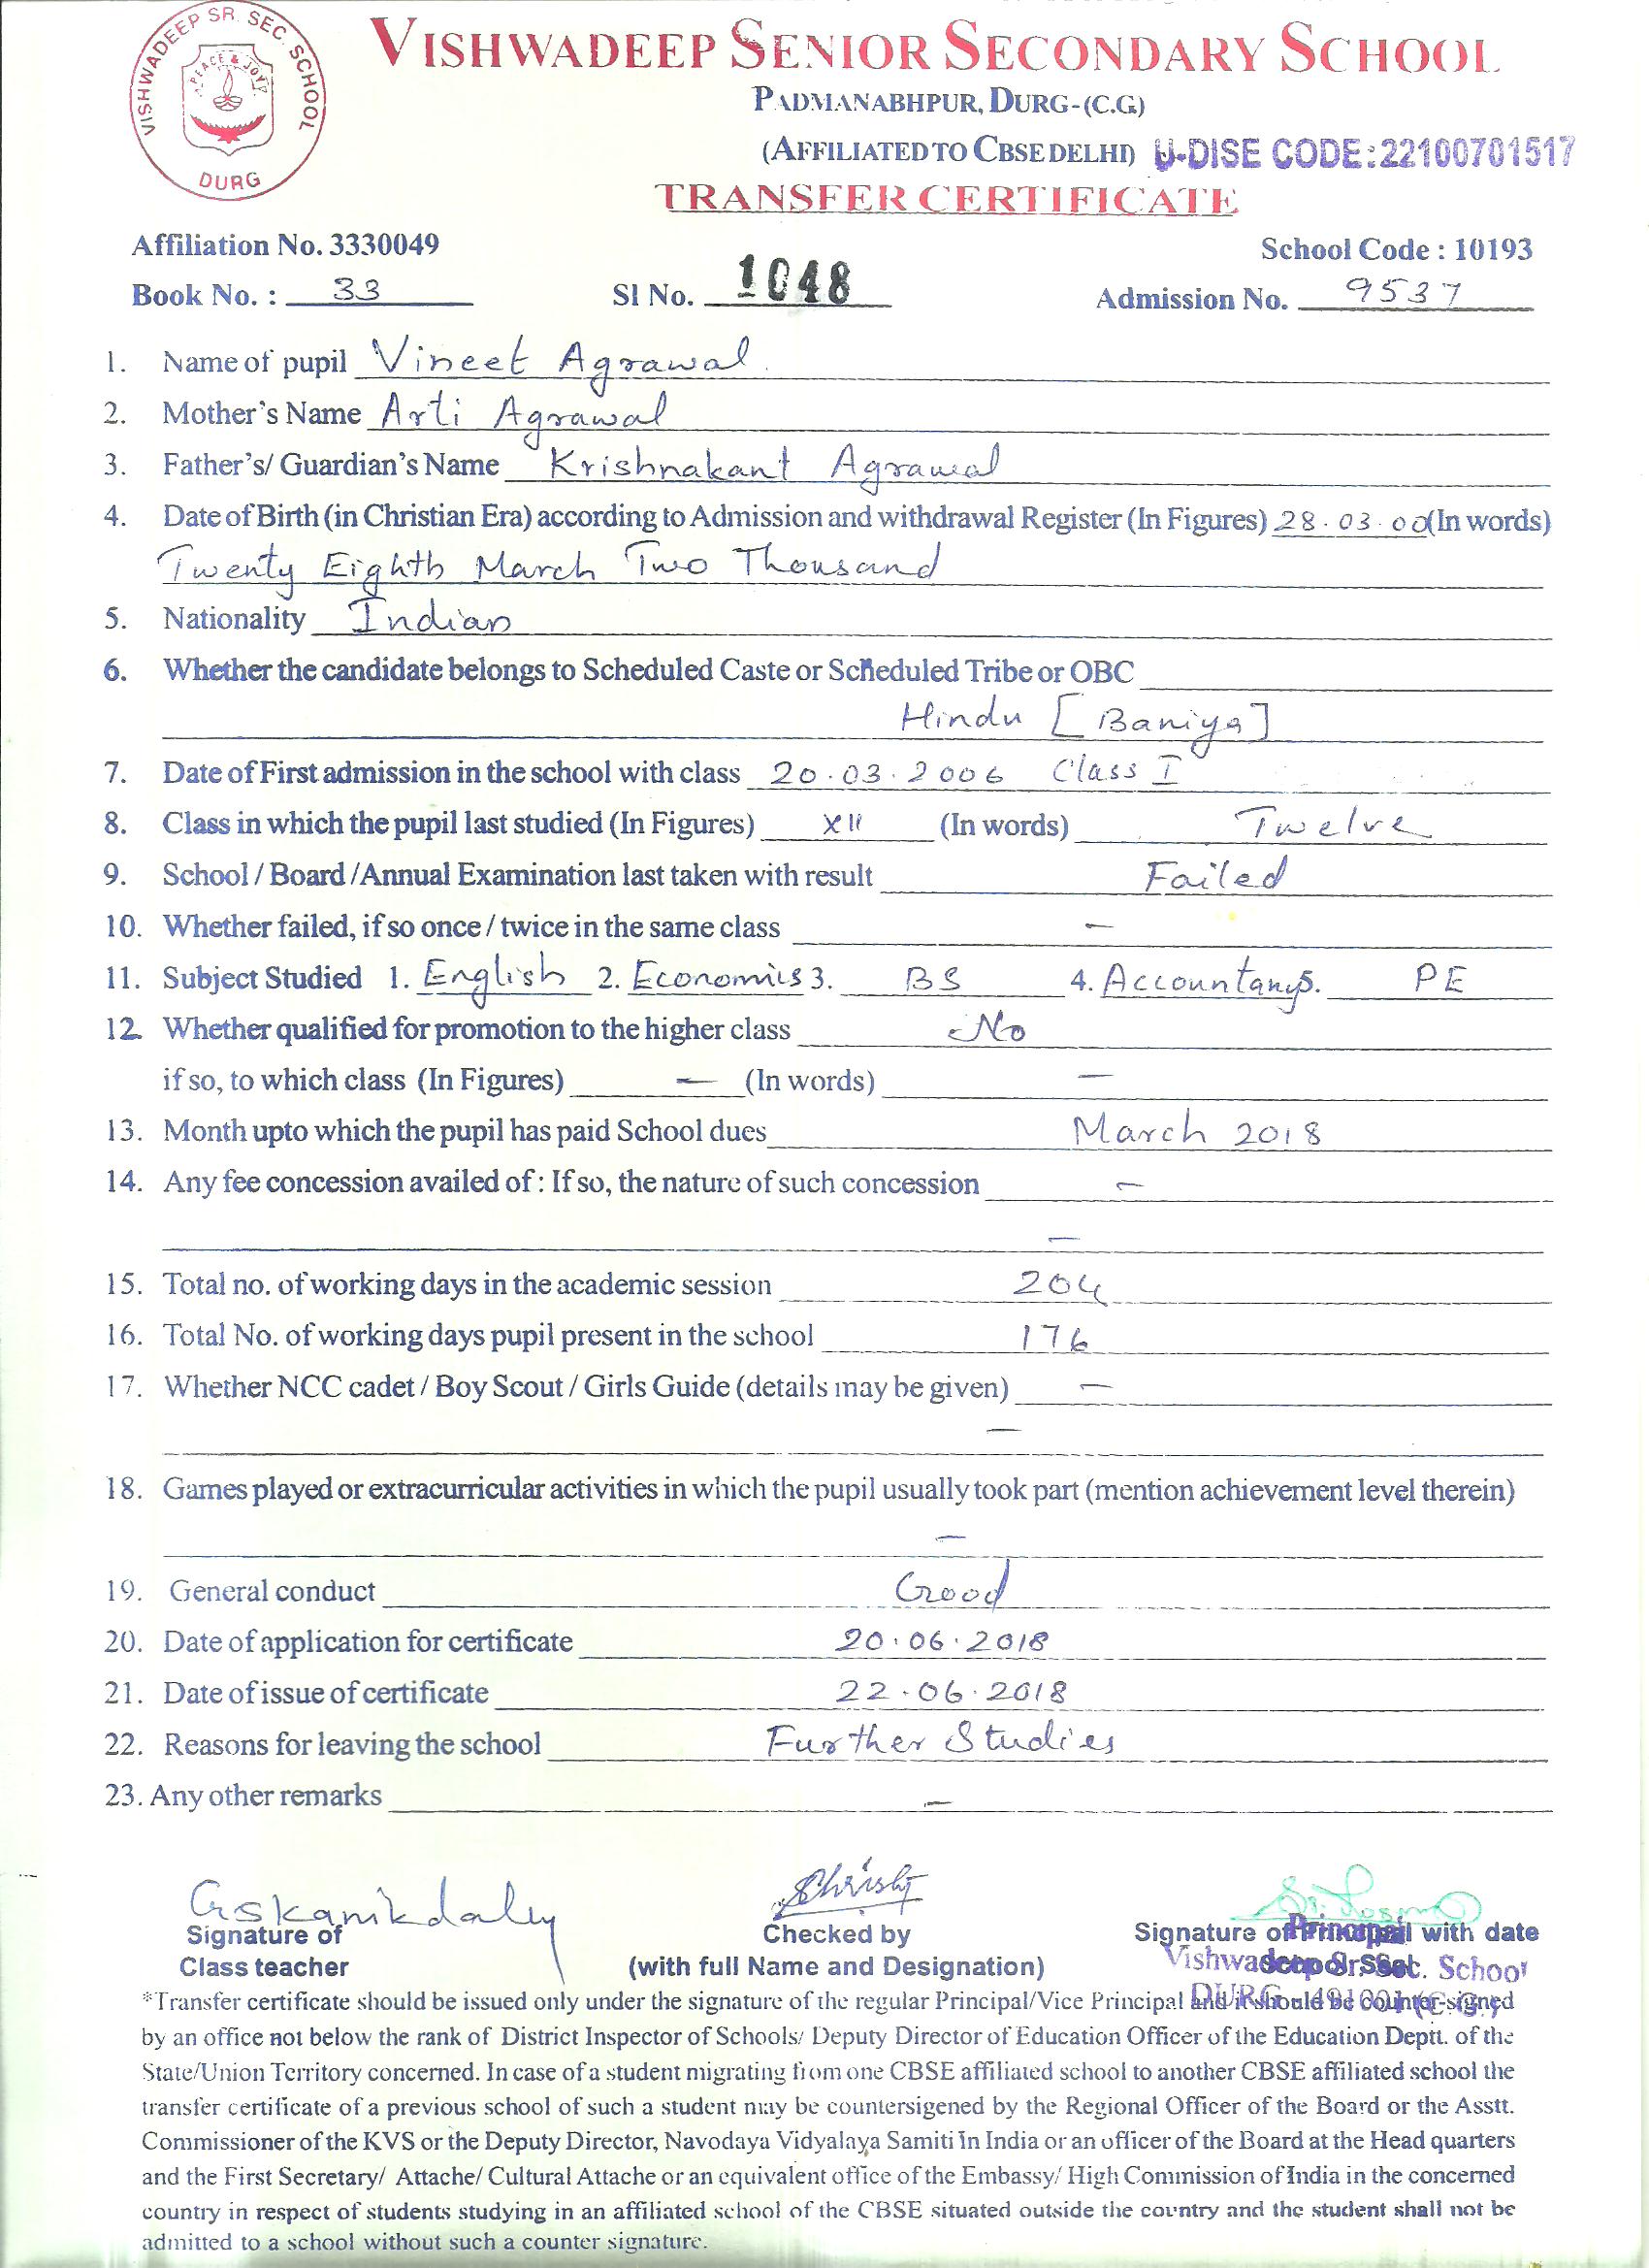 VISHWADEEP SR. SEC. SCHOOL
PEACE & JOY
DURG
VISHWADEEP SENIOR SECONDARY SCHOOL
PADMANABHPUR, DURG-(C.G)
(AFFILIATED TO CBSE DELHI) U-DISE CODE:22100701517
TRANSFER CERTIFICATE
Affiliation No. 3330049 School Code : 10193
Book No. : 33 Sl No. 1048 Admission No. 9537
1. Name of pupil Vineet Agrawal
2. Mother's Name Arti Agrawal
3. Father's/ Guardian's Name Krishnakant Agrawal
4. Date of Birth (in Christian Era) according to Admission and withdrawal Register (In Figures) 28.03.00 (In words)
Twenty Eighth March Two Thousand
5. Nationality Indian
6. Whether the candidate belongs to Scheduled Caste or Scheduled Tribe or OBC
Hindu [Baniya]
7. Date of First admission in the school with class 20.03.2006 Class I
8. Class in which the pupil last studied (In Figures) XII (In words) Twelve
9. School / Board /Annual Examination last taken with result Failed
10. Whether failed, if so once / twice in the same class –
11. Subject Studied 1. English 2. Economics 3. BS 4. Accountancy 5. PE
12. Whether qualified for promotion to the higher class No
if so, to which class (In Figures) – (In words) –
13. Month upto which the pupil has paid School dues March 2018
14. Any fee concession availed of : If so, the nature of such concession –
–
15. Total no. of working days in the academic session 204
16. Total No. of working days pupil present in the school 176
17. Whether NCC cadet / Boy Scout / Girls Guide (details may be given) –
–
18. Games played or extracurricular activities in which the pupil usually took part (mention achievement level therein)
–
19. General conduct Good
20. Date of application for certificate 20.06.2018
21. Date of issue of certificate 22.06.2018
22. Reasons for leaving the school Further Studies
23. Any other remarks –
Signature of Checked by Signature of Principal with date
Class teacher (with full Name and Designation) Vishwadeep Sr. Sec. School
*Transfer certificate should be issued only under the signature of the regular Principal/Vice Principal and it should be counter-signed
by an office not below the rank of District Inspector of Schools/ Deputy Director of Education Officer of the Education Deptt. of the
State/Union Territory concerned. In case of a student migrating from one CBSE affiliated school to another CBSE affiliated school the
transfer certificate of a previous school of such a student may be countersigned by the Regional Officer of the Board or the Asstt.
Commissioner of the KVS or the Deputy Director, Navodaya Vidyalaya Samiti In India or an officer of the Board at the Head quarters
and the First Secretary/ Attache/ Cultural Attache or an equivalent office of the Embassy/ High Commission of India in the concerned
country in respect of students studying in an affiliated school of the CBSE situated outside the country and the student shall not be
admitted to a school without such a counter signature.